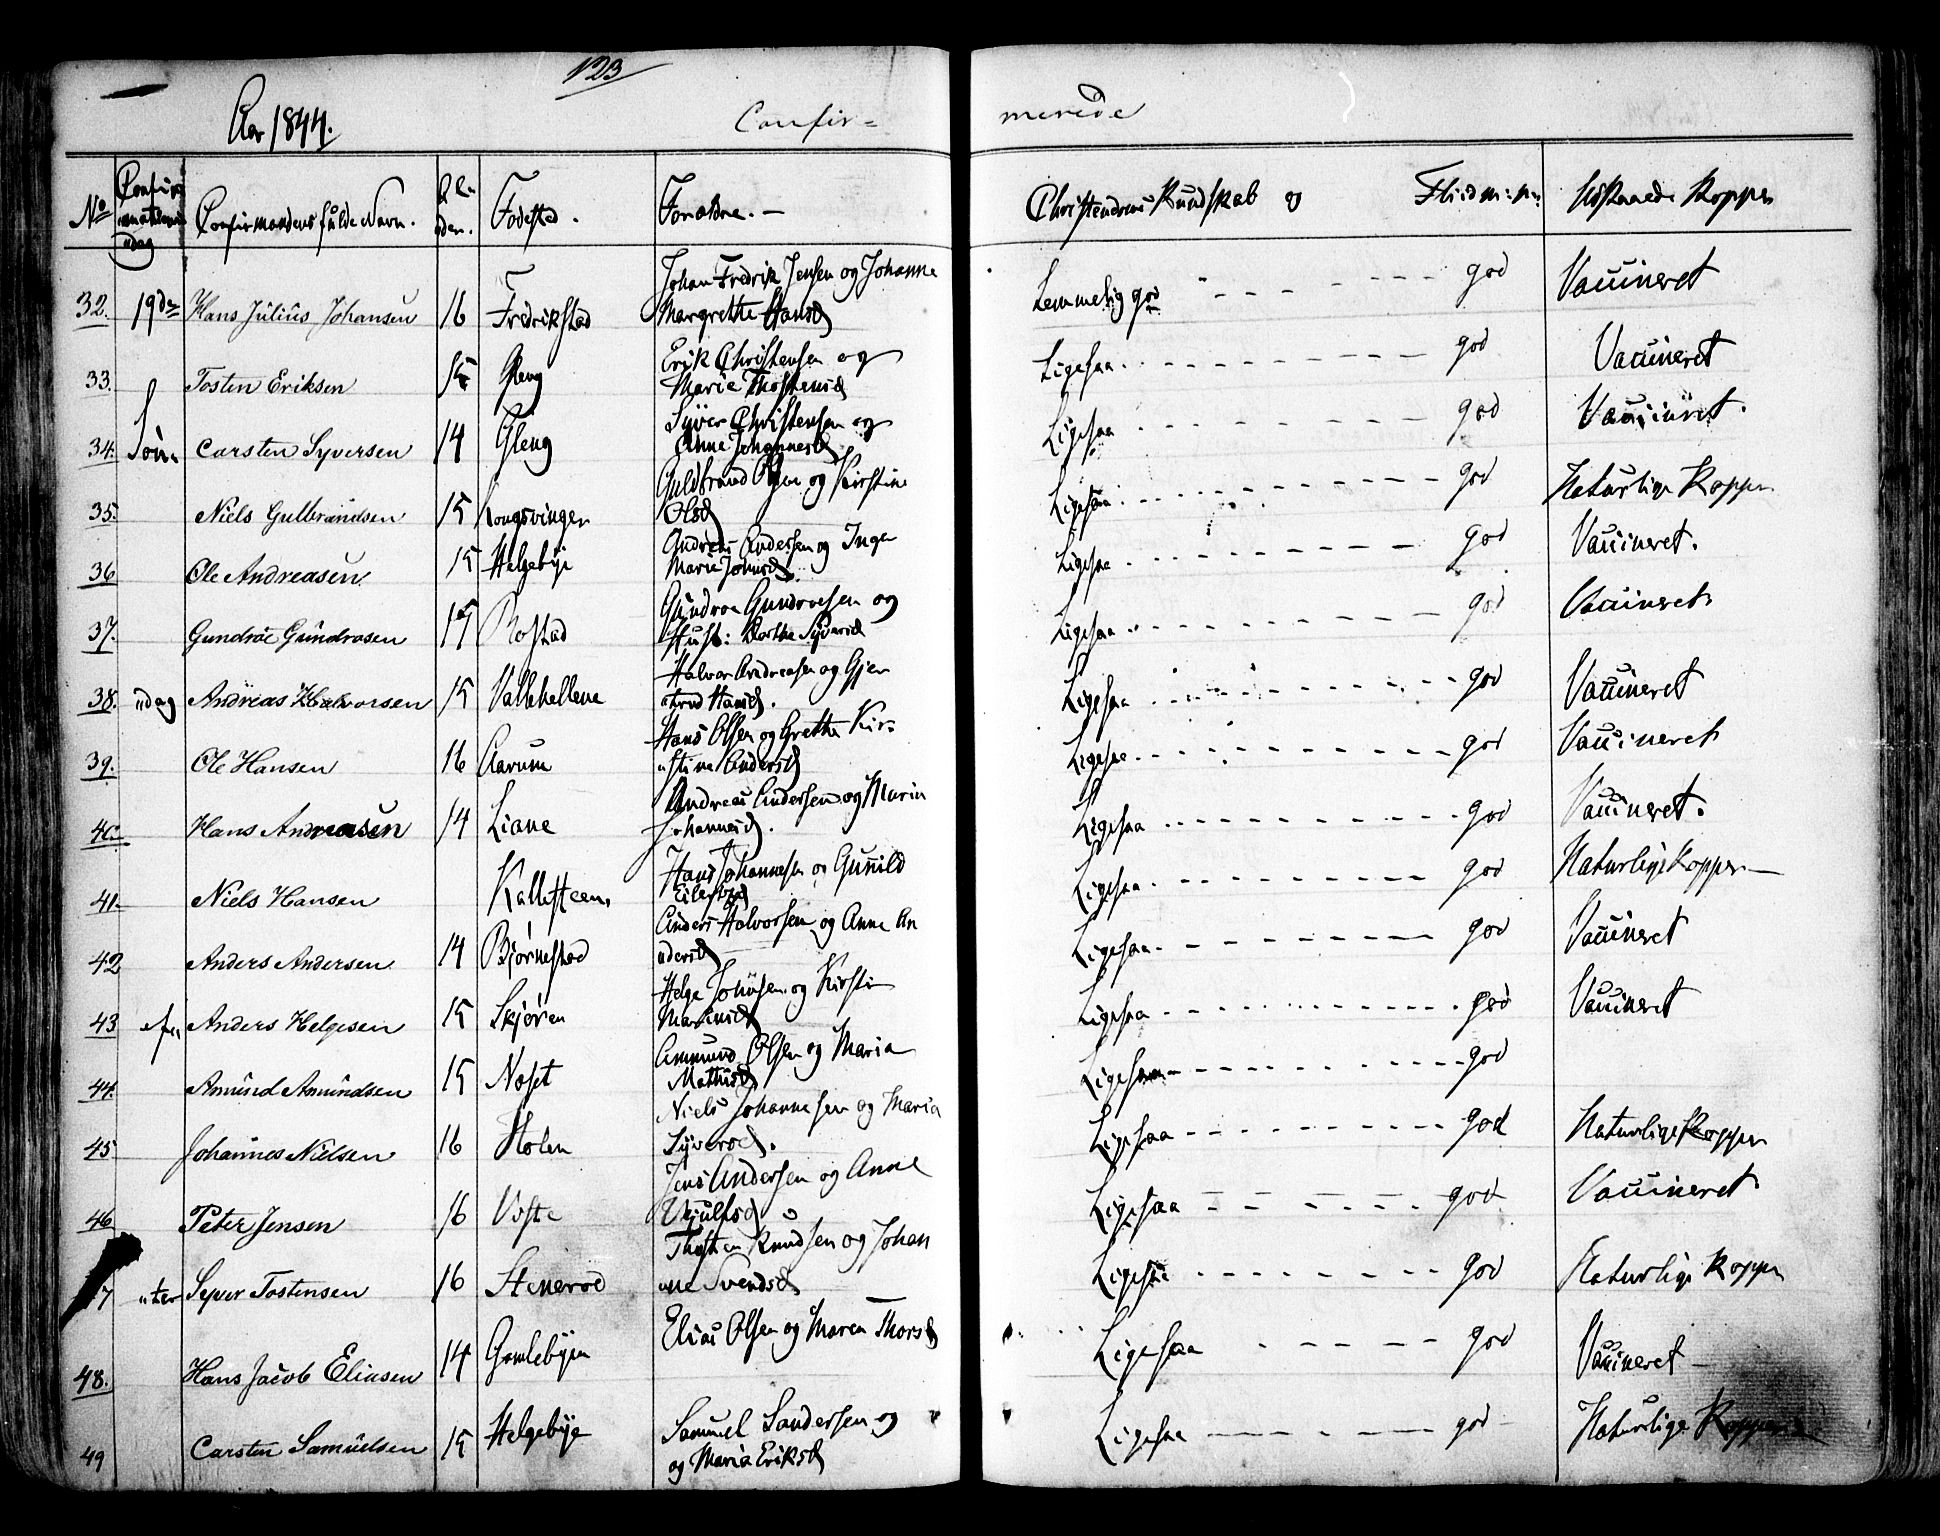 123
Aar 1844. Confir= merede
No Confirmationsdag Confirmandens fulde Navn. Alderen. Fødested. Forældre. — Christendoms Kundskab og Flid Udstaaede Kopper
32. 19de Hans Julius Johansen 16 Fredrikstad Johan Fredrik Jensen og Johanne
Margrethe Hansd Temmelig god - - - god Vaccineret
33. Tosten Eriksen 15 Gleng Erik Christensen og
Marie Thostensd Ligesaa - - - god Vaccineret
34. Søn. Carsten Syversen 14 Gleng Syver Christensen og
Anne Johannesd Ligesaa - - - god Vaccineret.
35. Niels Gulbrandsen 15 Kongsvinger Guldbrand Olsen og Kirstine
Olsd Ligesaa - - - god Naturlige Kopper
36 Ole Andreasen 15 Helgebye Andreas Andersen og Inger
Marie Ligesaa - - - god Vaccineret.
37. Gundroe Gundrosen Rostad Gundroe Gundroesen og
Hust: Dorthe Syversd Ligesaa - - - god Vaccineret
38. "dag Andreas Halvorsen 15 Vallehellene Halvor Andreasen og Gjer
"trud Hansd. Ligesaa - - - god Vaccineret
39. Ole Hansen 16 Aarum Hans Olsen og Grethe Kir=
"stine Andersd Ligesaa - - - god Vaccineret
40. Hans Andreasen 14 Liane Andreas Andersen og Maria
Johannesd. Ligesaa - - - god Vaccineret.
41. Niels Hansen Kallesteen, Hans Johannesen og Gunild
Ligesaa - - - god Naturlige Kopper —
42 Anders Andersen 14 Bjørnestad Anders Halvorsen og Anne An
dersd Ligesaa - - - god Vaccineret
43 Anders Helgesen 15 Skjøren Helge Johnsen og Kirstin
Ligesaa - - - god Vaccineret
44. Amund Amundsen 15 Noset Ammund Olsen og Maria
Mathisd Ligesaa - - - god
45 Johannes Nielsen 16 Holen Niels Johannesen og Maria
Syversd. Ligesaa - - - god Naturlige Kopper
46 Peter Jensen 16 Jens Andersen og Anne
Ligesaa - - - god Vaccineret
47 "ter Syver Tostensen 16 Stenerød Thosten Knudsen og Johan
ne Svendsd Ligesaa - - - god Naturlige Kopper
48. Hans Jacob Eliasen 14 Gamlebyen Elias Olsen og Maren Thorsd Ligesaa - - - god Vaccineret —
49 Carsten Samuelsen 15 Helgebye Samuel Sandersen og
og Maria Eriksd Ligesaa - - - god Naturlige Kopper